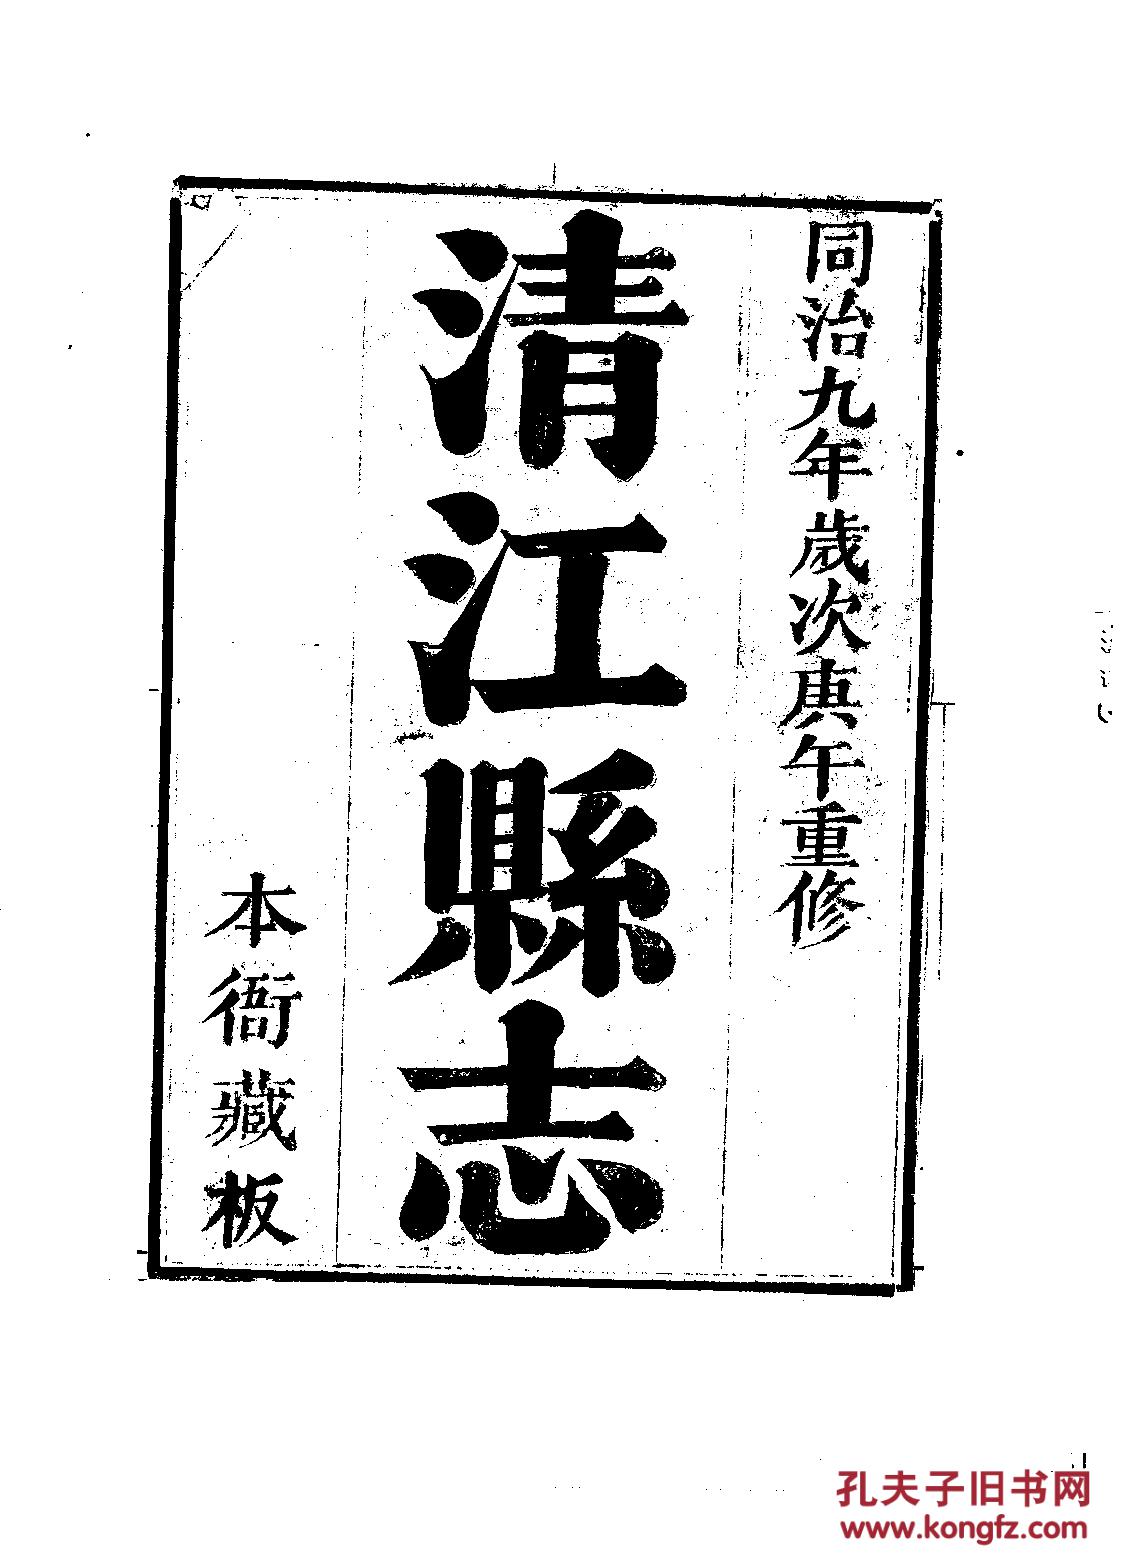 同治九年歲次庚午重修
清江縣志
本衙藏板
孔夫子旧书网
www.kongfz.com